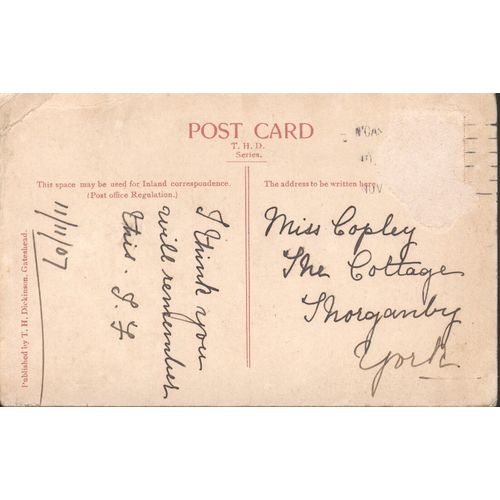 POST CARD
T. H. D.
Series.
This space may be used for Inland correspondence.
(Post office Regulation.)
The address to be written here.
11/11/07
I think you
will remember
this. J. F
Miss Copley
The Cottage
Thorganby
York
Published by T. H. Dickinson, Gateshead.
NOV